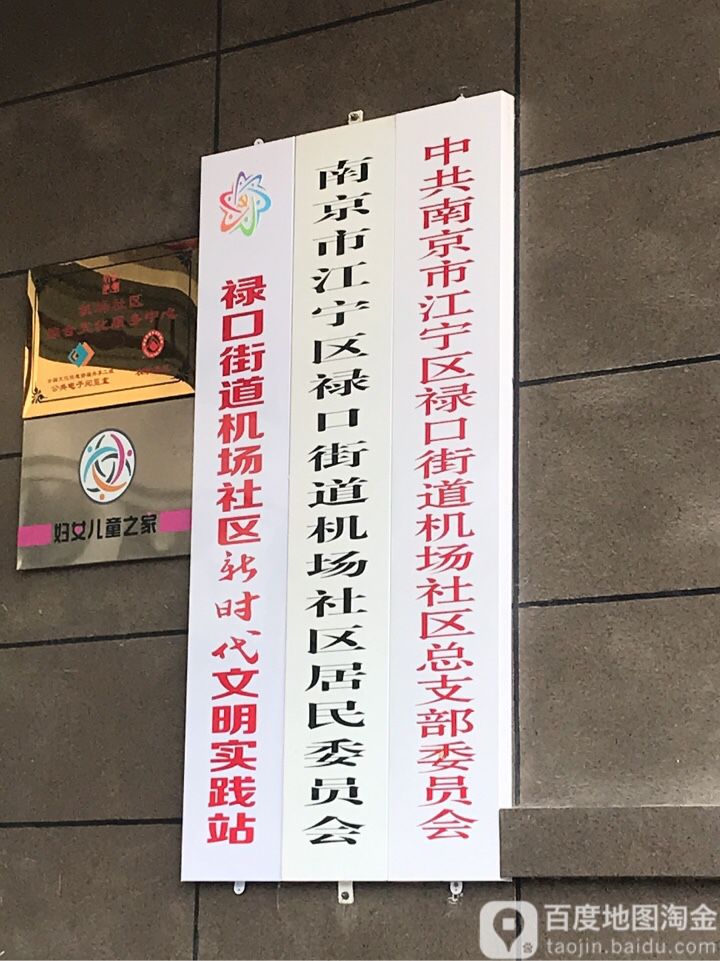 中共南京市江宁区禄口街道机场社区总支部委员会
南京市江宁区禄口街道机场社区居民委员会
禄口街道机场社区新时代文明实践站
机场社区
综合文化服务中心
公共电子阅览室
妇女儿童之家
百度地图淘金
taojin.baidu.com